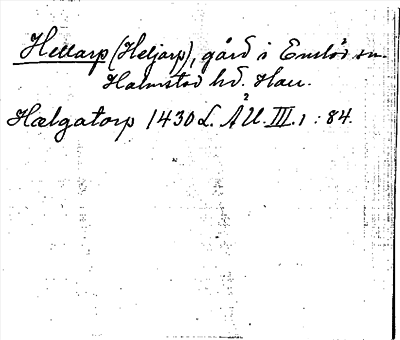 Hellarp (Heljarp), gård i Enslöv sn.
Halmstad hd. Hall.
Hælgatorp 1430 L. ÅU. III. 1 : 84.